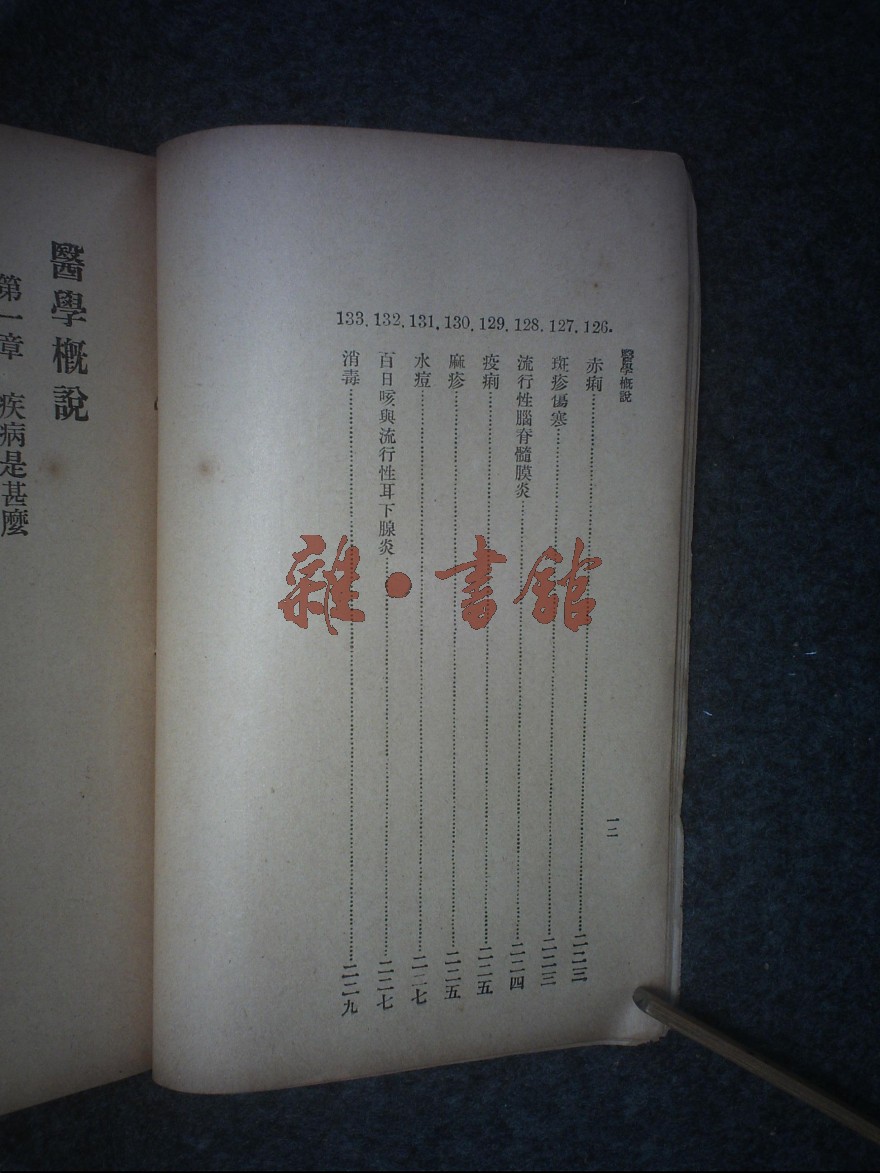 醫學槪說
一二
126. 赤痢 二二三
127. 斑疹傷寒 二二三
128. 流行性腦脊髓膜炎 二二四
129. 疫痢 二二五
130. 麻疹 二二五
131. 水痘 二二七
132. 百日咳與流行性耳下腺炎 二二七
133. 消毒 二二九
醫學槪說
第一章 疾病是甚麼
雜·書館